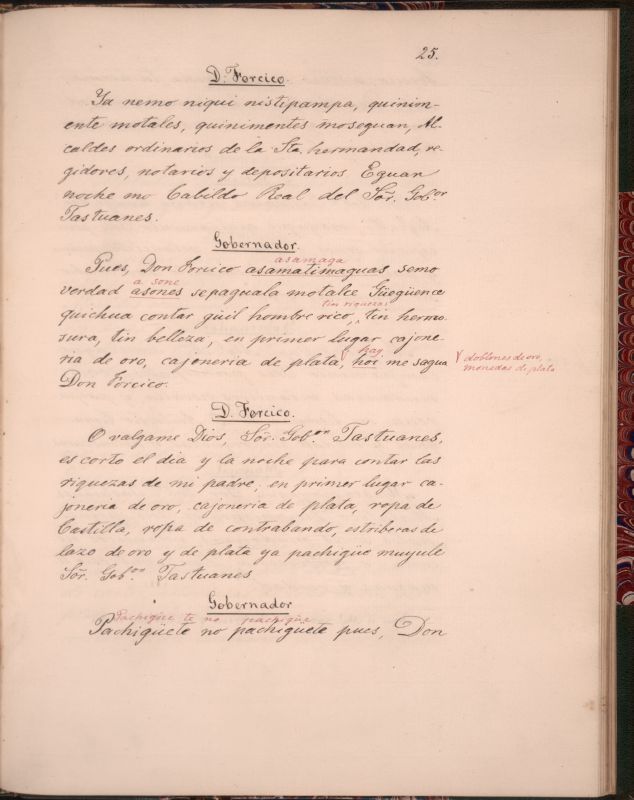 25.
D. Forcico.
Ya nemo niqui nistipampa, quinim-
ente motales, quinimentes moseguan, Al-
caldes ordinarios de la Sta. hermandad, re-
gidores, notarios y depositarios Eguan
noche mo Cabildo Real del Sōr. Gobor
Tastuanes.
Gobernador.
asamaga
Pues, Don Forcico asamatimaguas semo
a sone
verdad asones sepaguala motalce Güegüence
tin riquezas
quichua contar güil hombre rico, tin hermo-
sura, tin belleza, en primer lugar cajone-
hay
ria de oro, cajoneria de plata, √ hoi me sagua
√ doblones de oro,
monedas de plata
Don Forcico.
D. Forcico.
O valgame Dios, Sōr. Gob.or Tastuanes,
es corto el dia y la noche para contar las
riquezas de mi padre; en primer lugar ca-
joneria de oro, cajoneria de plata, ropa de
Castilla, ropa de contrabando, estriberas de
lazo de oro y de plata ya pachigüe muyule
Sōr. Gob.or Tastuanes
Gobernador
Pachigüe te no pachigüe
Pachigüete no pachigüete pues, Don